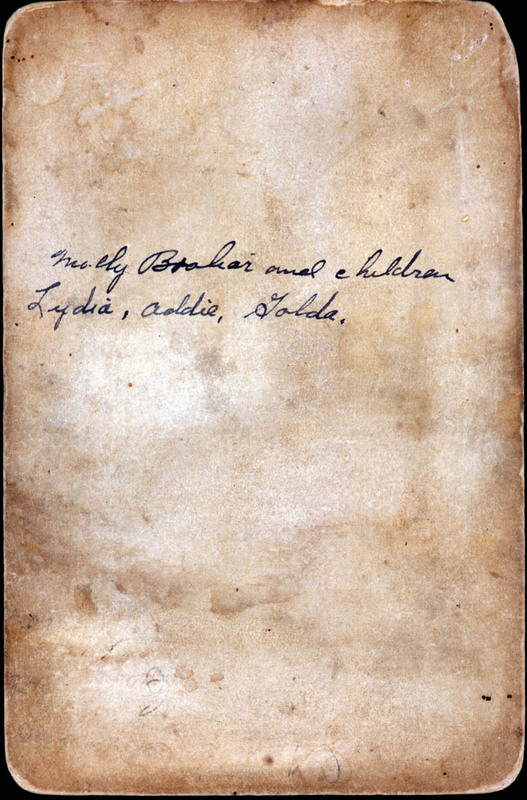 Molly Brokar and children
Lydia, Addie, Golda.